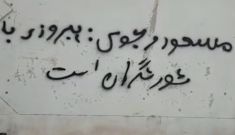 مسعود رجوی: پیروزی با
شورشگران است